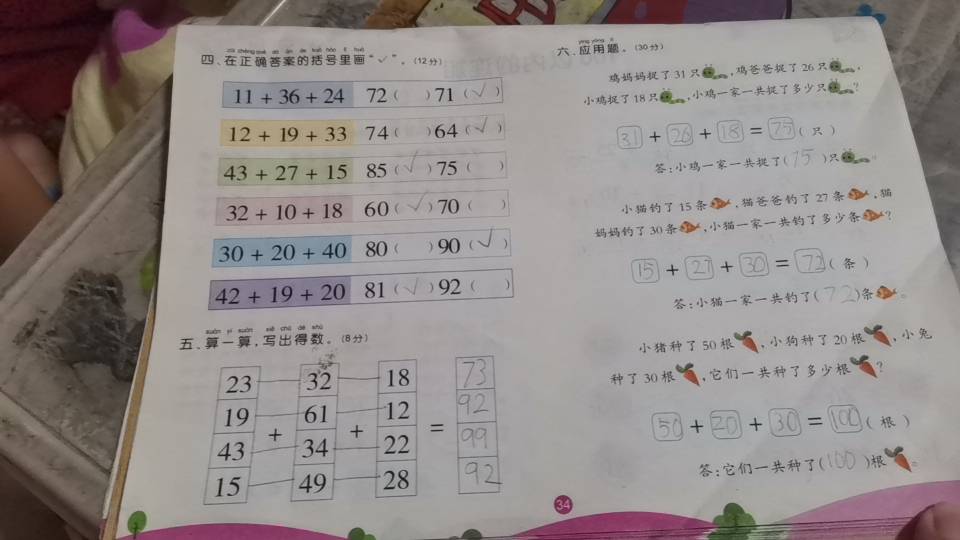 四、在正确答案的括号里画“√”。(12分)
11 + 36 + 24 72 ( ) 71 (√)
12 + 19 + 33 74 ( ) 64 (√)
43 + 27 + 15 85 (√) 75 ( )
32 + 10 + 18 60 (√) 70 ( )
30 + 20 + 40 80 ( ) 90 (√)
42 + 19 + 20 81 (√) 92 ( )
suàn yí suàn xiě chū dé shù
五、算一算,写出得数。(8分)
23 32 18 73
19 61 12 92
+ + =
43 34 22 99
15 49 28 92
yìng yòng tí
六、应用题。(30分)
鸡妈妈捉了31只,鸡爸爸捉了26只,
小鸡捉了18只,小鸡一家一共捉了多少只?
31 + 26 + 18 = 75 (只)
答:小鸡一家一共捉了(75)只。
小猫钓了15条,猫爸爸钓了27条,猫
妈妈钓了30条,小猫一家一共钓了多少条?
15 + 27 + 30 = 72 (条)
答:小猫一家一共钓了(72)条。
小猪种了50根,小狗种了20根,小兔
种了30根,它们一共种了多少根?
50 + 20 + 30 = 100 (根)
答:它们一共种了(100)根。
34